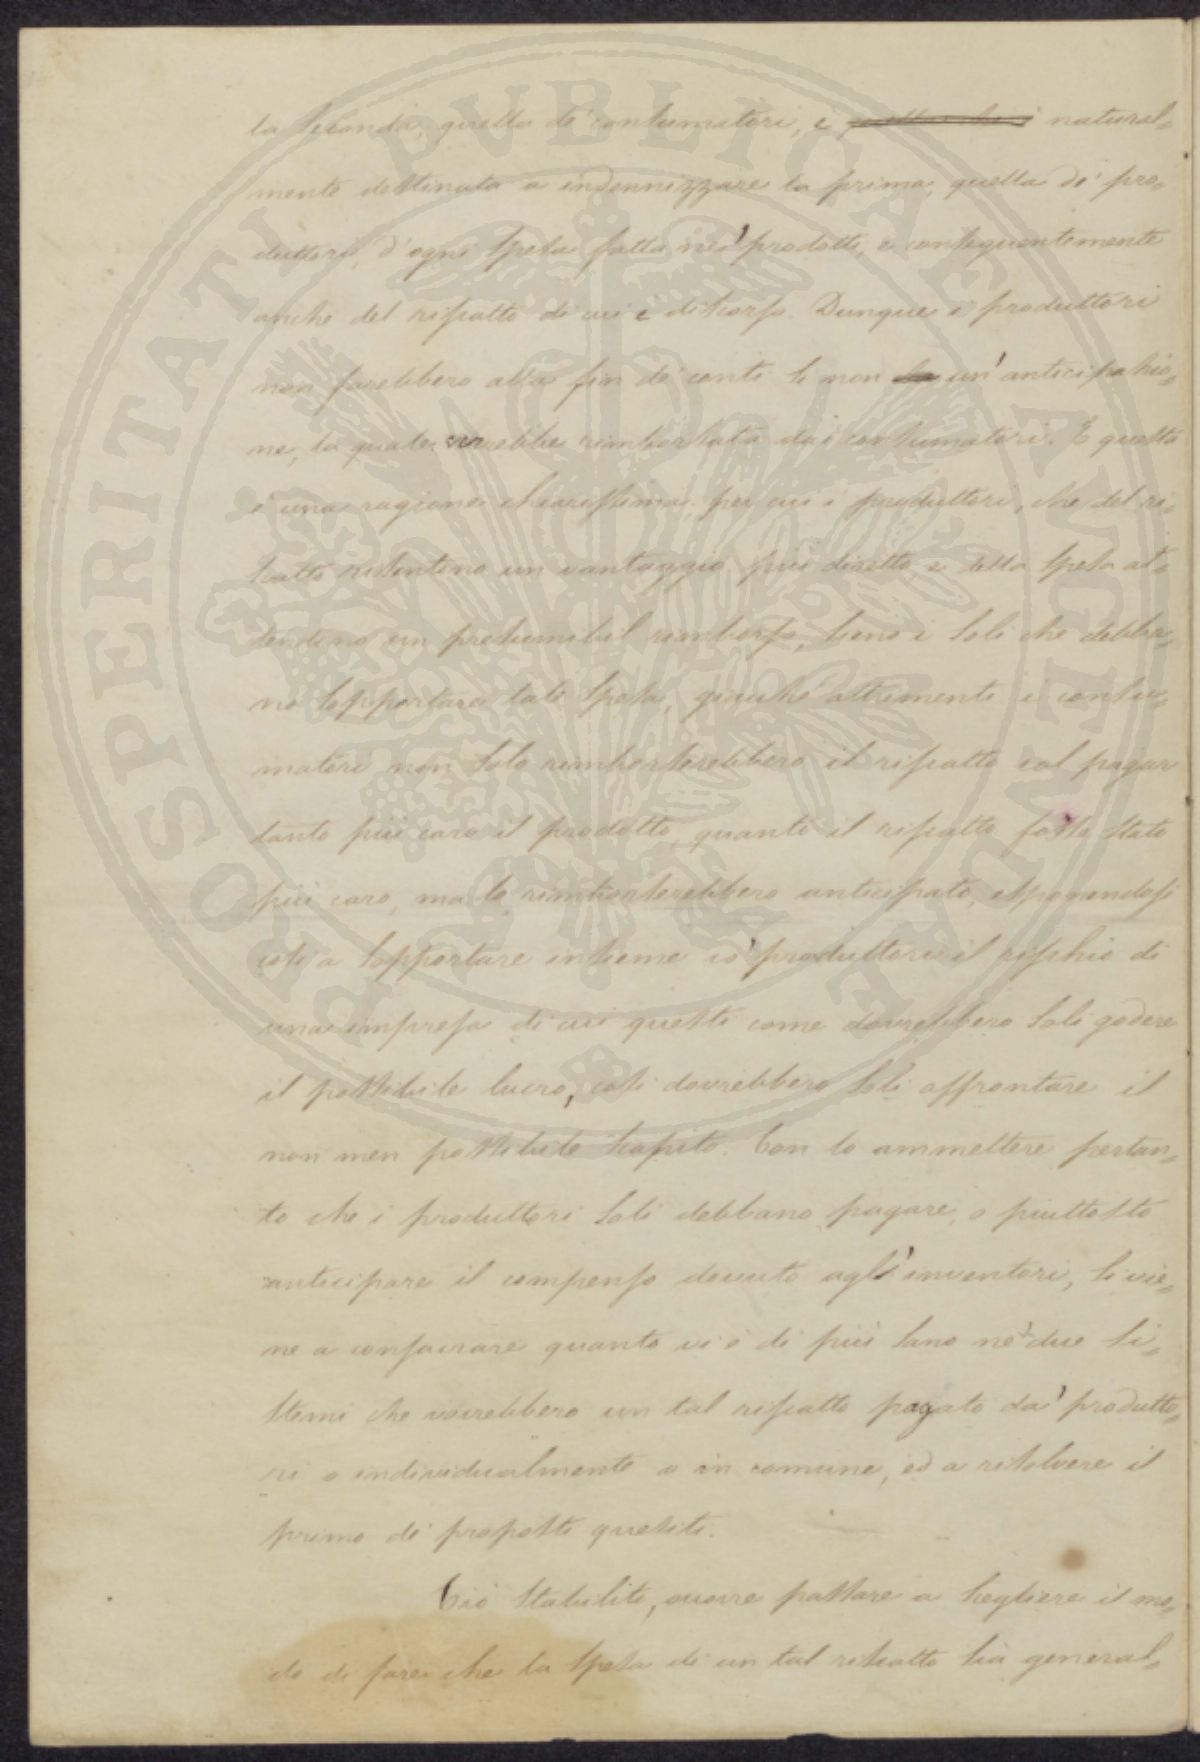 la seconda, quella de' consumatori, è ~~quella che è~~ natural=
mente destinata a indennizzare la prima, quella de' pro=
duttori, d'ogni spesa fatta ne' prodotti, e conseguentemente
anche del riscatto di cui è discorso. Dunque i produttori
non farebbero alla fin de' conti se non un' anticipazio=
ne, la quale verrebbe rimborsata dai consumatori. E questa
è una ragione chiarissima per cui i produttori, che del ri=
scatto risentono un vantaggio più diretto e della spesa at=
tendono un presumibil rimborso, sieno i soli che debba=
no sopportare tale spesa, giacchè altrimenti i consu=
matori non solo rimborserebbero il riscatto col pagar
tanto più caro il prodotto, quanto il riscatto fosse stato
più caro, ma lo rimborserebbero anticipato, esponendosi
così a sopportare insieme co' produttori il rischio di
una impresa di cui questi come dovrebbero soli godere
il possibile lucro, così dovrebbero soli affrontare il
non men possibile scapito. Con lo ammettere pertan=
to che i produttori soli debbano pagare, o piuttosto
anticipare il compenso dovuto agl' inventori, si vie=
ne a consacrare quanto vi è di più sano ne' due si=
stemi che vorrebbero un tal riscatto pagato da' produtto=
ri o individualmente o in comune, ed a risolvere il
primo de' proposti quesiti.
Ciò stabilito, occorre passare a scegliere il mo=
do di fare che la spesa di un tal riscatto sia general=
PROSPERITATI PVBLICAE AVGENDAE